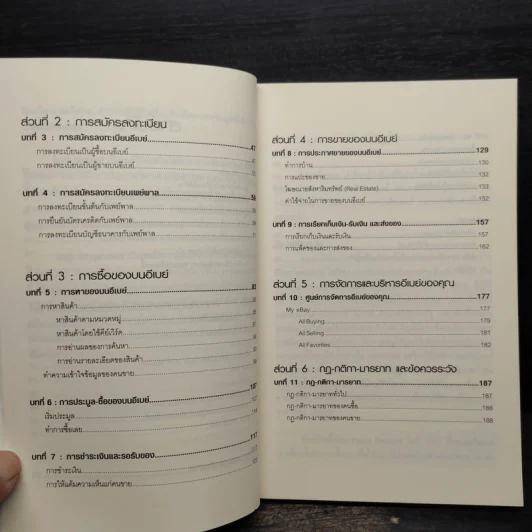 ส่วนที่ 2 : การสมัครลงทะเบียน
บทที่ 3 : การสมัครลงทะเบียนอีเบย์ 47
การลงทะเบียนเป็นผู้ซื้อบนอีเบย์
การลงทะเบียนเป็นผู้ขายบนอีเบย์
บทที่ 4 : การสมัครลงทะเบียนเพย์พาล 59
การลงทะเบียนขั้นต้นกับเพย์พาล
การยืนยันบัตรเครดิตกับเพย์พาล
การลงทะเบียนบัญชีธนาคารกับเพย์พาล
ส่วนที่ 3 : การซื้อของบนอีเบย์
บทที่ 5 : การหาของบนอีเบย์
การหาสินค้า
หาสินค้าตามหมวดหมู่
หาสินค้าโดยใช้คีย์เวิร์ด
การอ่านผลของการค้นหา
การอ่านรายละเอียดของสินค้า
ทำความเข้าใจข้อมูลของคนขาย
บทที่ 6 : การประมูล-ซื้อของบนอีเบย์
เริ่มประมูล
ทำการซื้อเลย
บทที่ 7 : การชำระเงินและรอรับของ 117
การชำระเงิน
การให้แต้มความเห็นแก่คนขาย
ส่วนที่ 4 : การขายของบนอีเบย์
บทที่ 8 : การประกาศขายของบนอีเบย์ 129
ทำการบ้าน 130
การแปะของขาย 132
โฆษณาอสังหาริมทรัพย์ (Real Estate) 152
ค่าใช้จ่ายในการขายของบนอีเบย์ 152
บทที่ 9 : การเรียกเก็บเงิน-รับเงิน และส่งของ 157
การเรียกเก็บเงินและรับเงิน 157
การแพ็คของและการส่งของ 162
ส่วนที่ 5 : การจัดการและบริหารอีเบย์ของคุณ
บทที่ 10 : ศูนย์การจัดการอีเบย์ของคุณ 177
My eBay 177
All Buying 179
All Selling 181
All Favorites 182
ส่วนที่ 6 : กฎ-กติกา-มารยาท และข้อควรระวัง
บทที่ 11 : กฎ-กติกา-มารยาท 187
กฎ-กติกา-มารยาททั่วไป 187
กฎ-กติกา-มารยาทของคนซื้อ 188
กฎ-กติกา-มารยาทของคนขาย 188